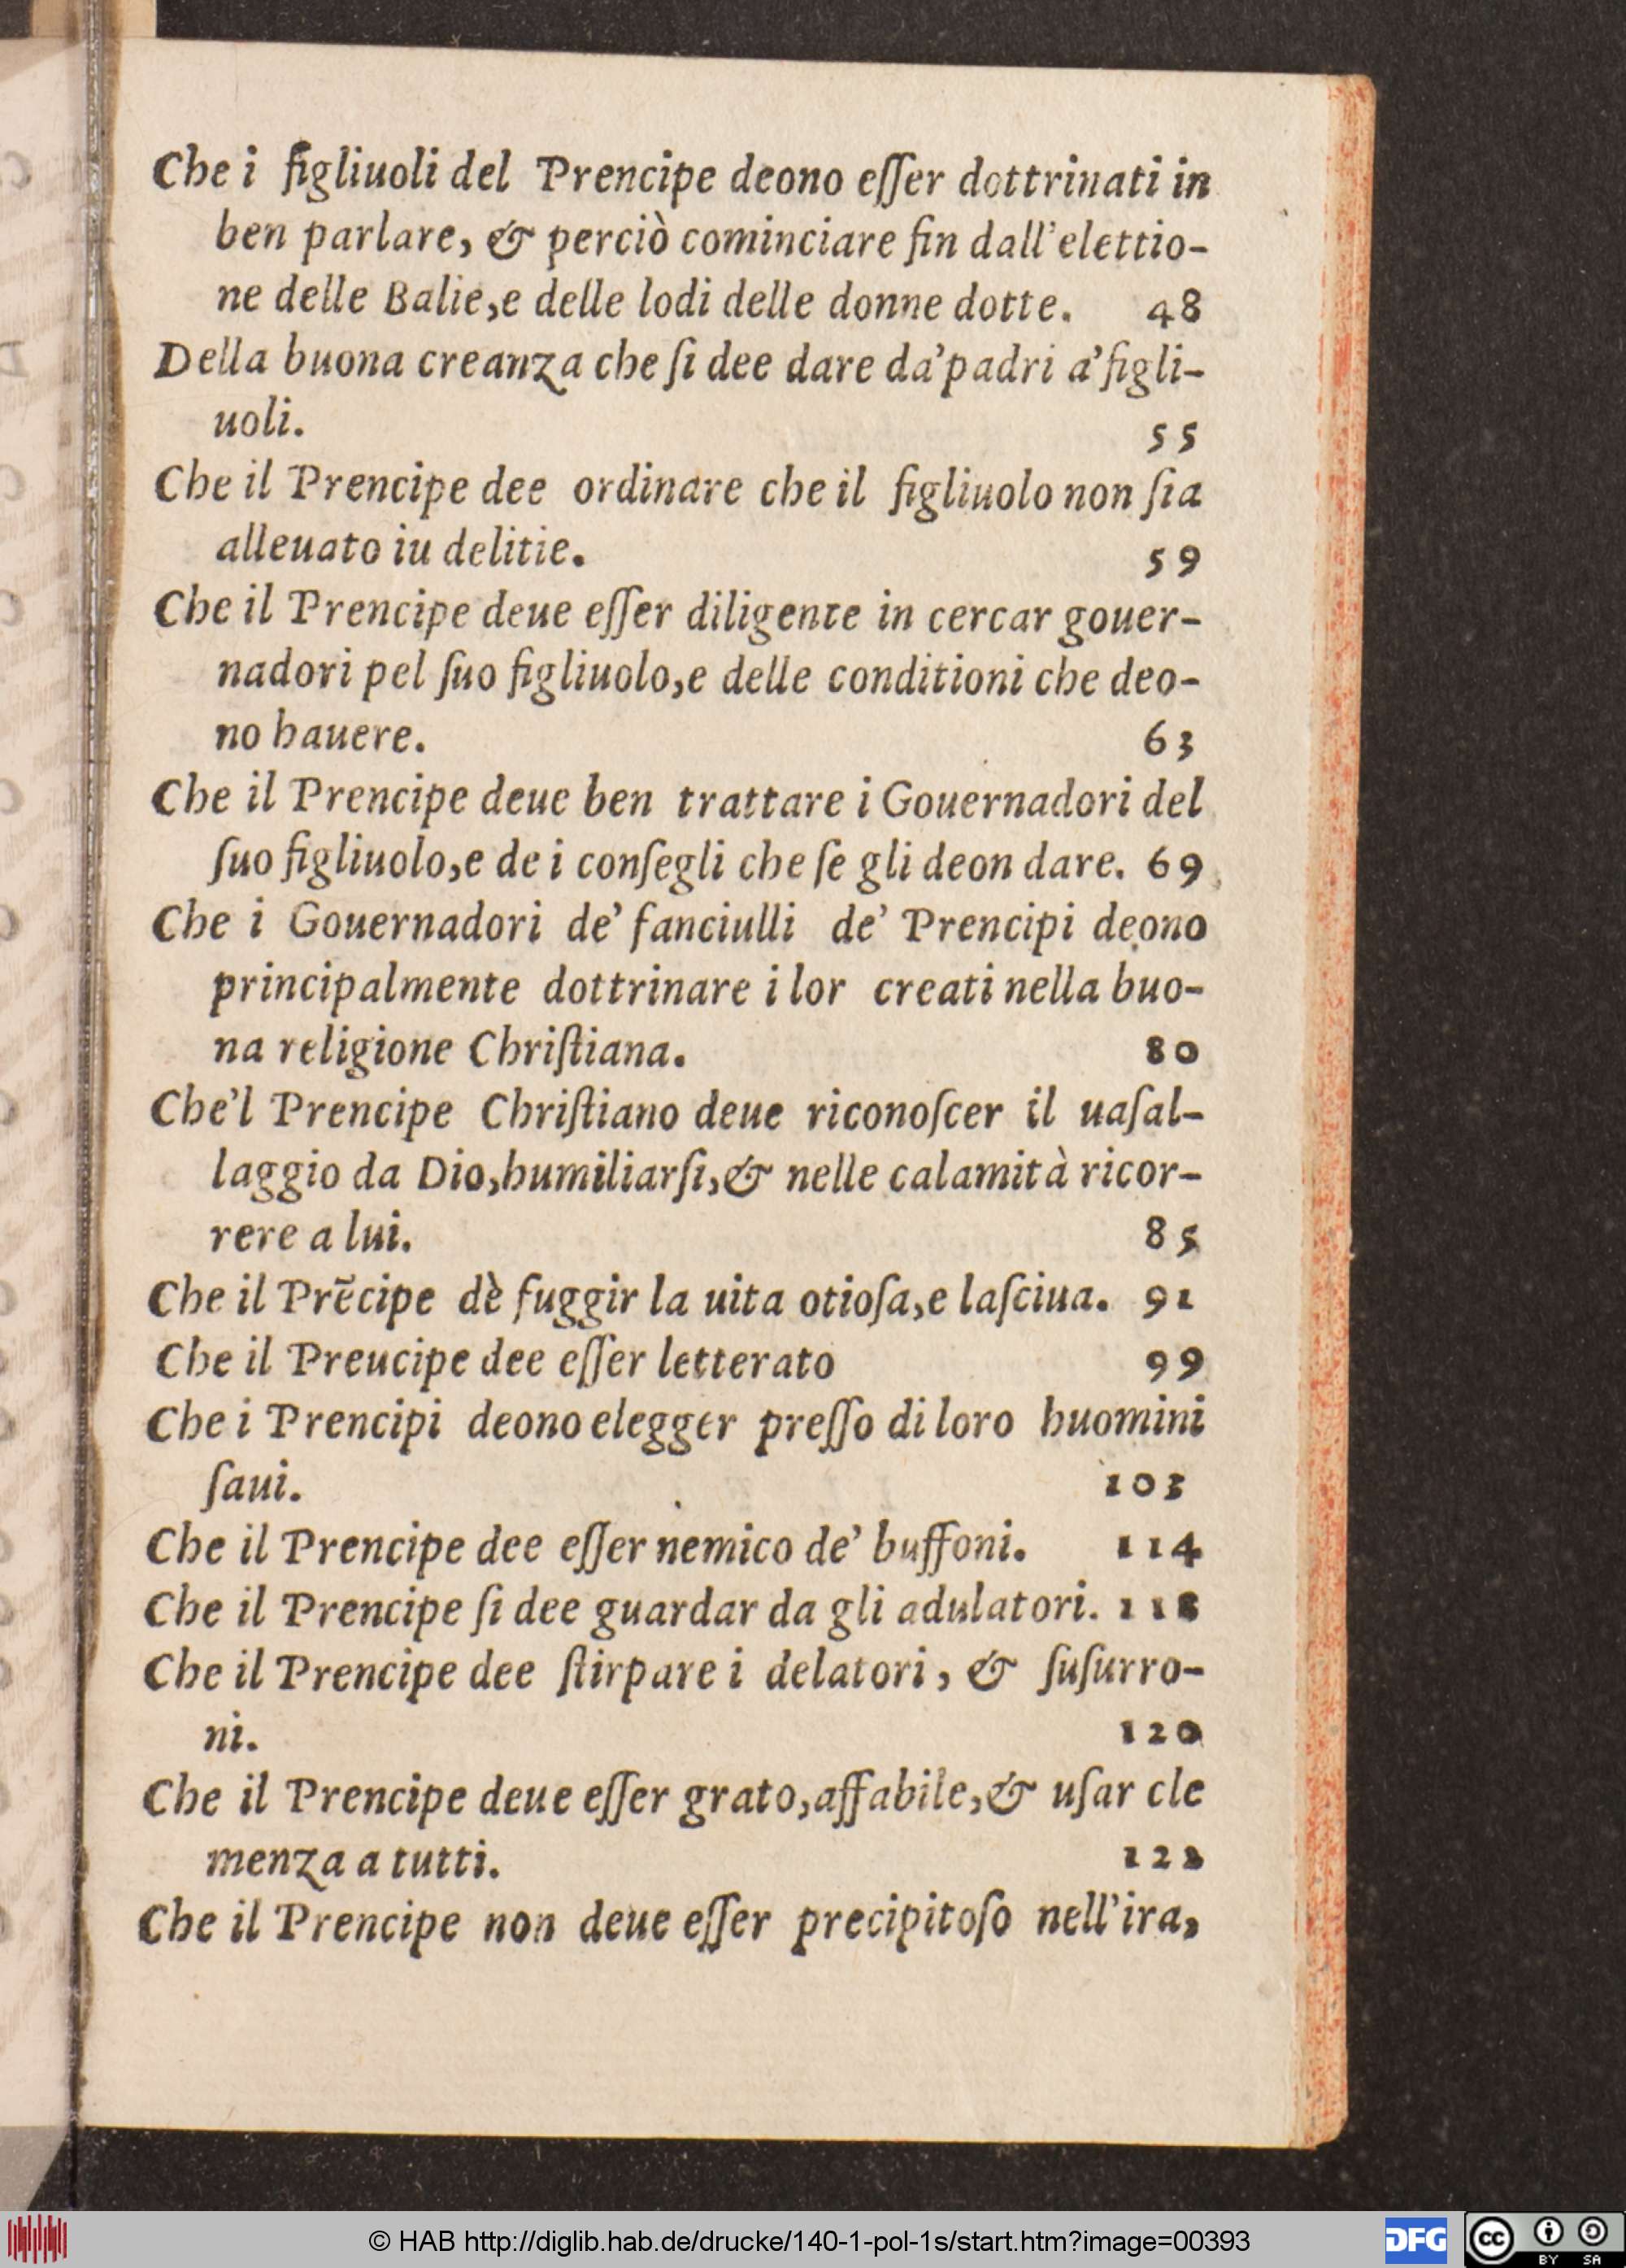 Che i figliuoli del Prencipe deono eſſer dottrinati in
ben parlare, & perciò cominciare fin dall'elettio-
ne delle Balie,e delle lodi delle donne dotte. 48
Della buona creanza che ſi dee dare da'padri a'figli-
uoli. 55
Che il Prencipe dee ordinare che il figliuolo non ſia
alleuato iu delitie. 59
Che il Prencipe deue eſſer diligente in cercar gouer-
nadori pel ſuo figliuolo,e delle conditioni che deo-
no hauere. 63
Che il Prencipe deue ben trattare i Gouernadori del
ſuo figliuolo,e de i conſegli che ſe gli deon dare. 69
Che i Gouernadori de' fanciulli de' Prencipi deono
principalmente dottrinare i lor creati nella buo-
na religione Chriſtiana. 80
Che'l Prencipe Chriſtiano deue riconoſcer il uaſal-
laggio da Dio,humiliarſi,& nelle calamità ricor-
rere a lui. 85
Che il Prẽcipe dè fuggir la uita otioſa,e laſciua. 91
Che il Preucipe dee eſſer letterato 99
Che i Prencipi deono elegger preſſo di loro huomini
ſaui. 103
Che il Prencipe dee eſſer nemico de' buffoni. 114
Che il Prencipe ſi dee guardar da gli adulatori. 118
Che il Prencipe dee ſtirpare i delatori, & ſuſurro-
ni. 120
Che il Prencipe deue eſſer grato,affabile,& uſar cle
menza a tutti.
Che il Prencipe non deue eſſer precipitoſo nell'ira,
© HAB http://diglib.hab.de/drucke/140-1-pol-1s/start.htm?image=00393
DFG
cc
BY SA